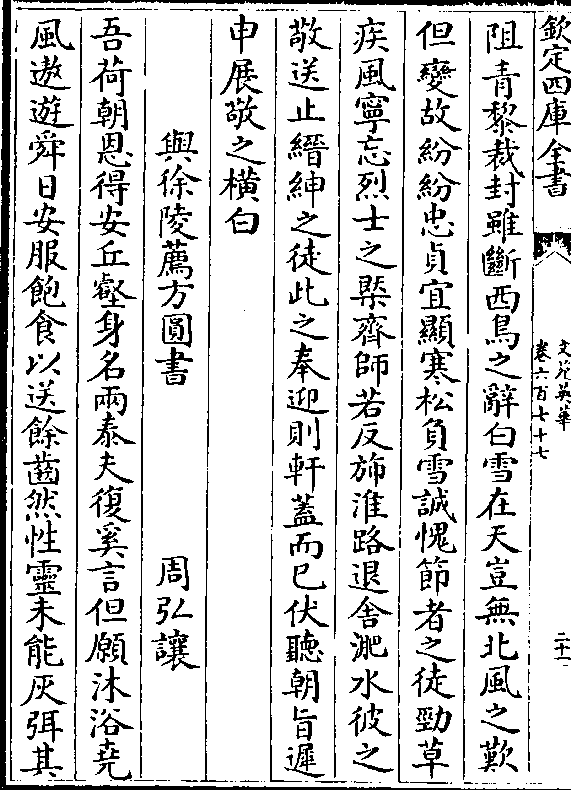 欽定四庫全書
文苑英華
卷六百七十七
二十一
阻青黎裁封雖斷西鳥之辭白雪在天豈無北風之歎
但變故紛紛忠貞宜顯寒松負雪誠愧節者之徒勁草
疾風寧忘烈士之槩齊師若反斾淮路退舍淝水彼之
敬送止縉紳之徒此之奉迎則軒蓋而已伏聽朝旨遲
申展敬之橫白
與徐陵薦方圓書 周弘讓
吾荷朝恩得安丘壑身名兩泰夫復奚言但願沐浴堯
風遨遊舜日安服飽食以送餘齒然性靈未能灰弭其